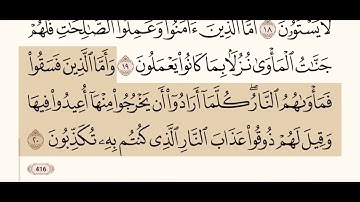 لَّا يَسْتَوُۥنَ ١٨ أَمَّا الَّذِينَ ءَامَنُوا۟ وَعَمِلُوا۟ الصَّٰلِحَٰتِ فَلَهُمْ
جَنَّٰتُ الْمَأْوَىٰ نُزُلًۢا بِمَا كَانُوا۟ يَعْمَلُونَ ١٩ وَأَمَّا الَّذِينَ فَسَقُوا۟
فَمَأْوَىٰهُمُ النَّارُ ۖ كُلَّمَآ أَرَادُوٓا۟ أَن يَخْرُجُوا۟ مِنْهَآ أُعِيدُوا۟ فِيهَا
وَقِيلَ لَهُمْ ذُوقُوا۟ عَذَابَ النَّارِ الَّذِى كُنتُم بِهِۦ تُكَذِّبُونَ ٢٠
416